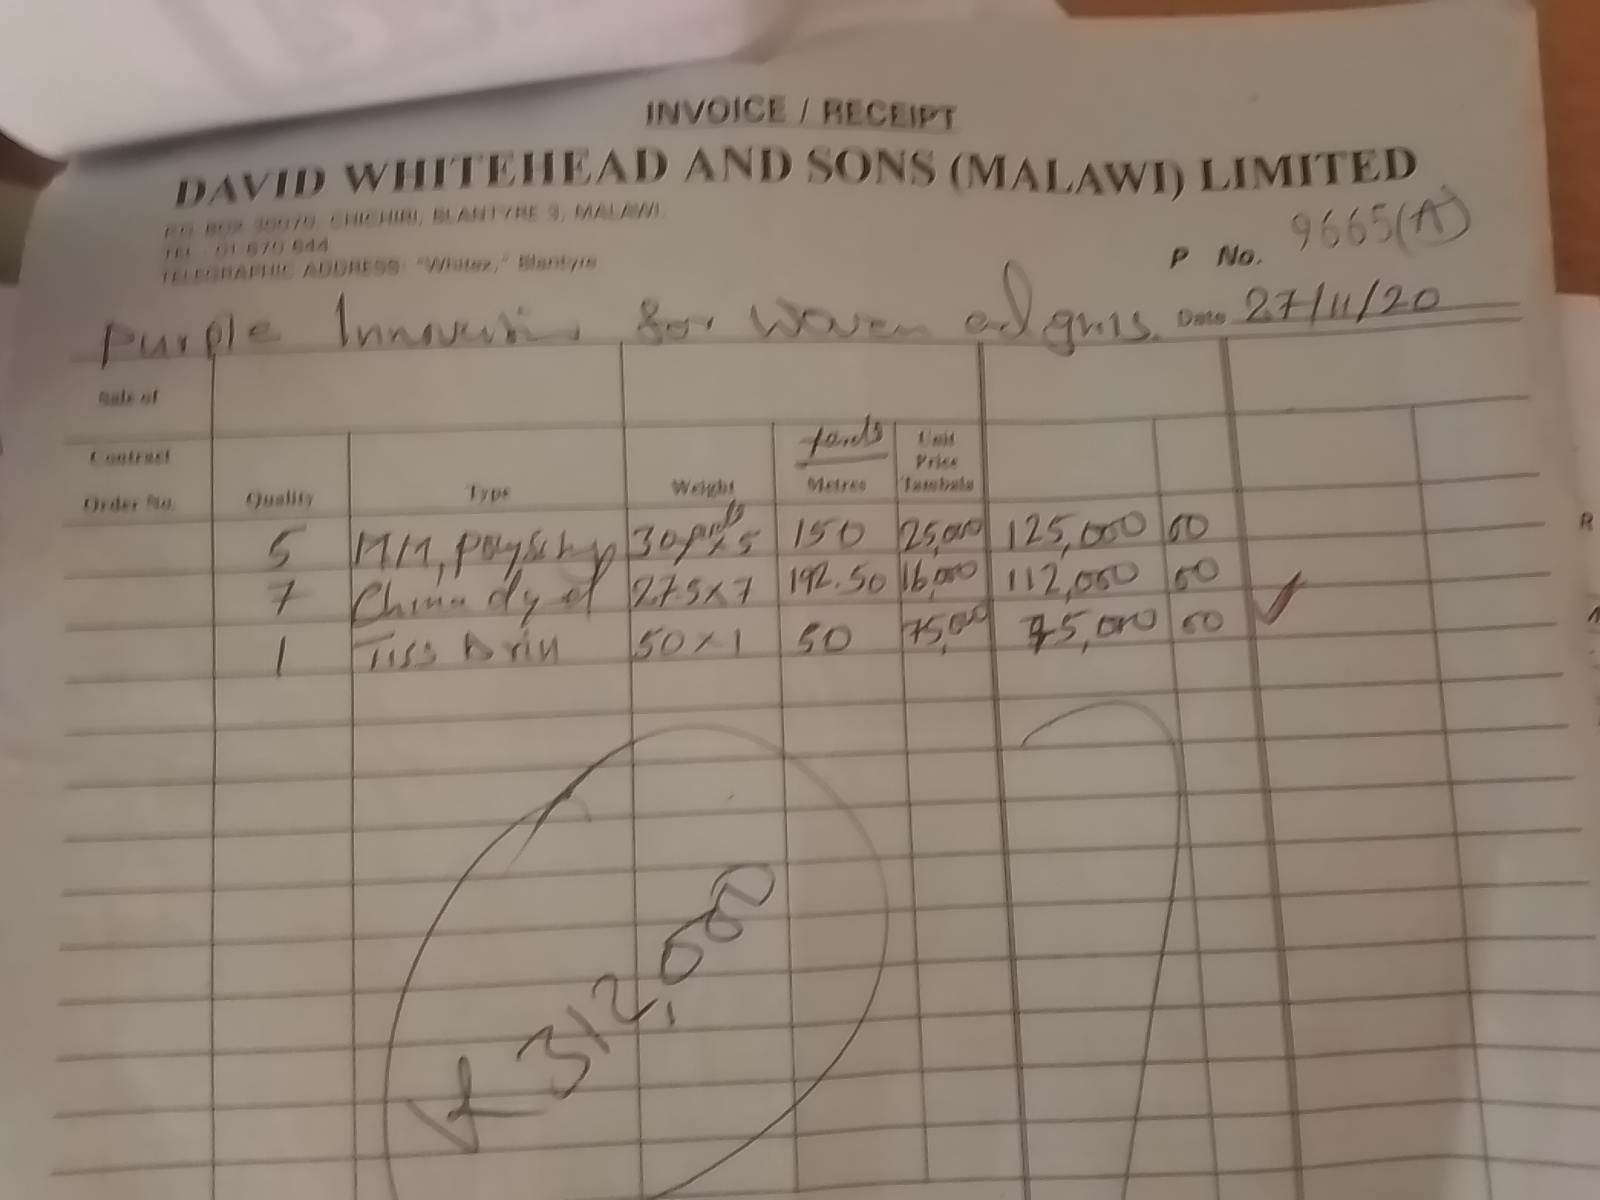 INVOICE / RECEIPT
DAVID WHITEHEAD AND SONS (MALAWI) LIMITED
P.O. BOX 35070, CHICHIRI, BLANTYRE 3, MALAWI.
TEL : 01 670 644
TELEGRAPHIC ADDRESS: "Whitex," Blantyre
P No. 9665(A)
Purple for Woven Date 27/11/20
Sale of
Contract
Order No. Quality Type Weight yards Metres Unit Price Tambala
5 30 x 5 150 25,000 125,000 00
7 China dyed 27.5 x 7 192.50 16,000 112,000 00
1 50 x 1 50 75,000 75,000 00
K 312,000
R